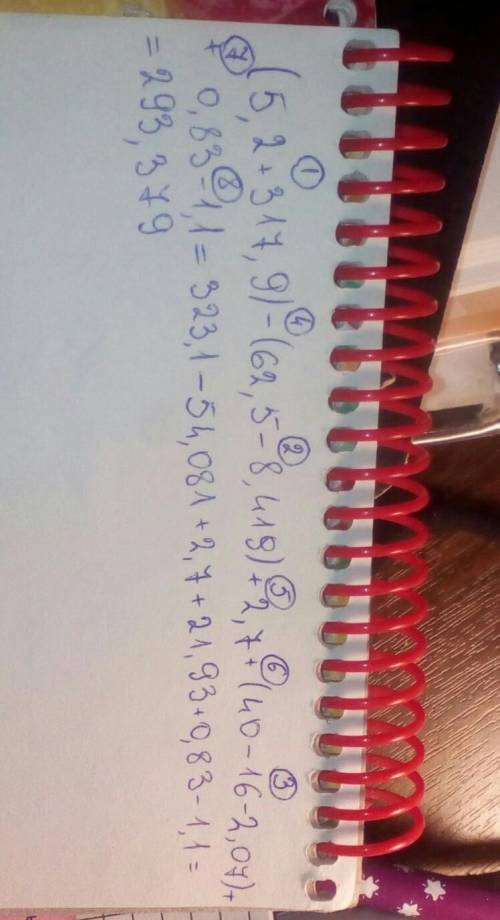 ① ④ ② ⑤ ⑥ ③
(5,2+317,9)-(62,5-8,419)+2,7+(40-16-2,07)+
⑦ ⑧
+ 0,83-1,1=323,1-54,081+2,7+21,93+0,83-1,1=
=293,379